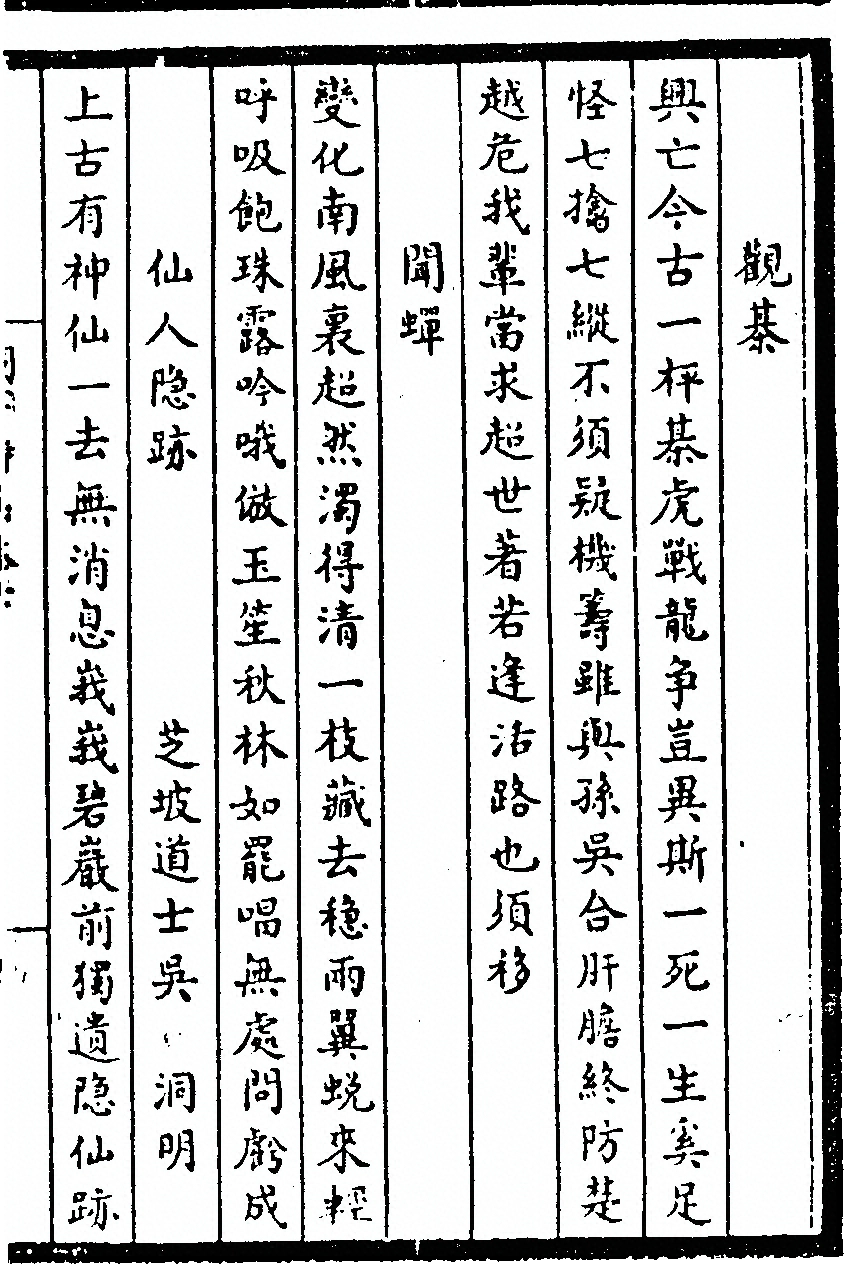 觀棊
興亡今古一枰棊虎戰龍争豈異斯一死一生奚足
怪七擒七縱不須疑機籌雖與孫吳合肝膽終防楚
越危我輩當求超世著若逢活路也須移
聞蟬
變化南風裏超然濁得清一枝藏去穏兩翼蛻來輕
呼吸飽珠露吟哦倣玉笙秋林如罷唱無處問虧成
仙人隐跡 芝坡道士吳 洞明
上古有神仙一去無消息峩峩碧巖前獨遺隐仙跡